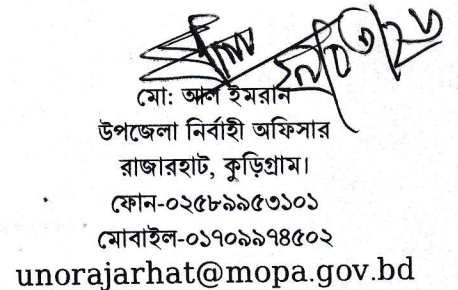 মো: আল ইমরান
উপজেলা নির্বাহী অফিসার
রাজারহাট, কুড়িগ্রাম।
ফোন-০২৫৮৯৯৫৩১০১
মোবাইল-০১৭০৯৯৭৪৫০২
unorajarhat@mopa.gov.bd